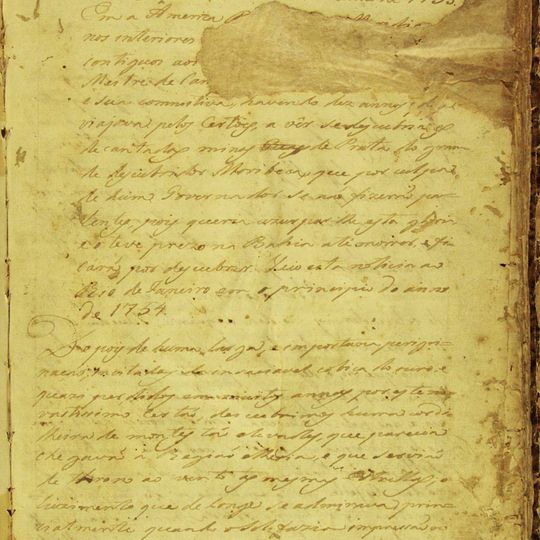 Em a America
nos interiores
contiguos aos
Mestre de Can
e sua commitiva, havendo dez annos, q̃
viajava pelos Certoẽs, a vêr se descubria as
decantadas minas de Prata do grande
descubridor Moribeca, que por culpa
de hum Governador se naõ fizeraõ pa-
tentes, pois queria uzurparlhe esta gloria
e o teve prezo na Bahia até morrer, e fi-
caraõ por descubrir. Veio esta noticia ao
Rio de Janeiro em o principio do anno
de 1754.
Depois de huma larga, e importuna perigri-
naçaõ, incitados da insaciavel cobiça do ouro, e
quazi perdidos em muitos annos por este
vastissimo Certaõ, descubrimos huma cordi-
lheira de montes taõ elevados, que parecia
chegavaõ a Regiaõ etheria, e que serviaõ
de throno ao vento, às mesmas Estrellas, o
luzimento que de longe se admirava, prin-
cipalmente quando o Sol fazia impressaõ ao